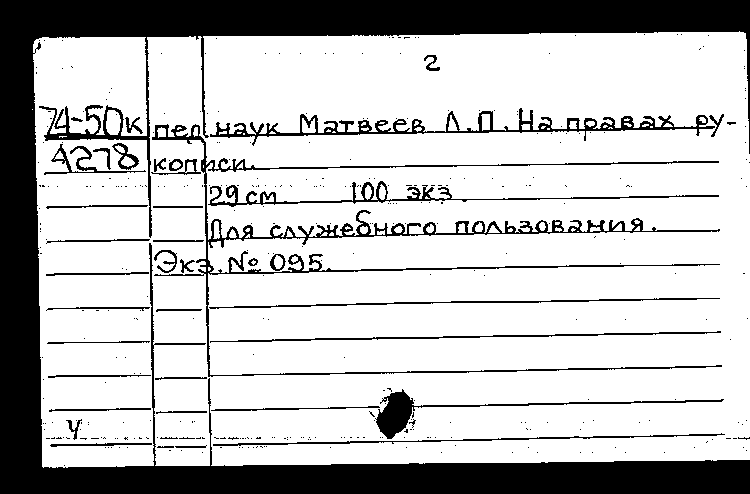 2
74-50к пед. наук Матвеев Л.П. На правах ру-
4278 кописи.
29 см 100 экз.
Для служебного пользования.
Экз. № 095.
ч